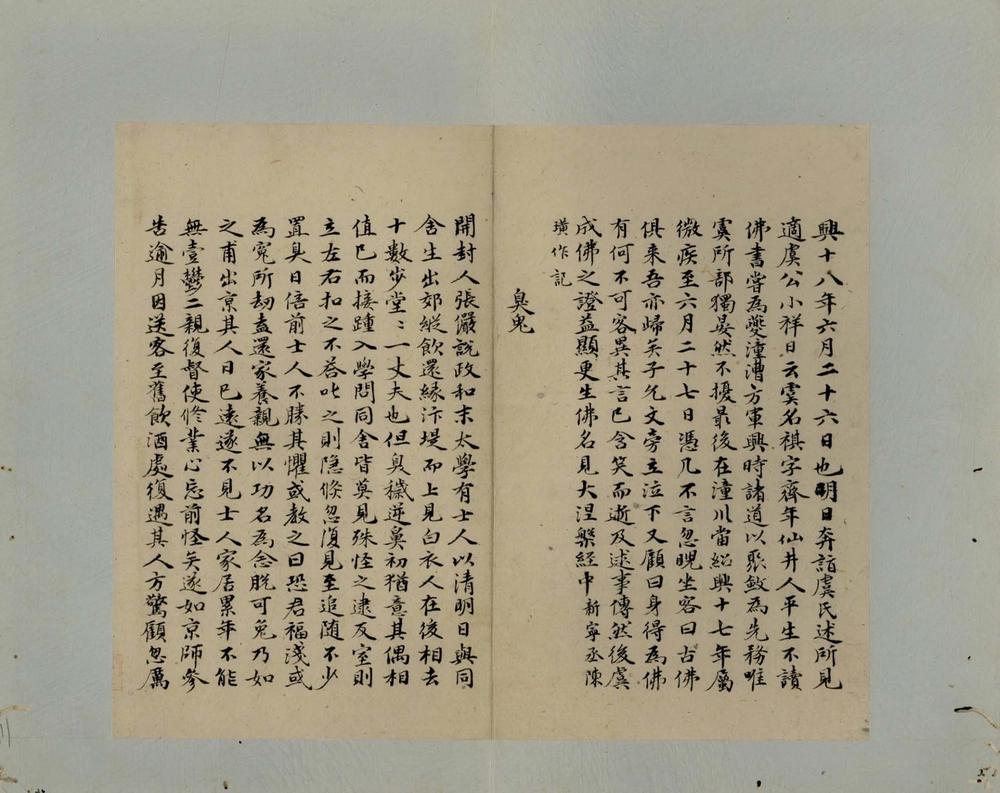 興十八年六月二十六日也明日奔詣虞氏述所見
適虞公小祥日云虞名祺字齊年仙井人平生不讀
佛書嘗為夔潼漕方軍興時諸道以聚斂為先務唯
虞所部獨晏然不擾最後在潼川當紹興十七年屬
微疾至六月二十七日憑几不言忽睨坐客曰古佛
俱来吾亦㱕矣子允文旁立泣下又顧曰身得為佛
有何不可容異其言已含笑而逝及述事傳然後虞
成佛之證益顯更生佛名見大涅槃經中新寧丞陳
璜作記
臭鬼
開封人張儼說政和末太學有士人以清明日與同
舍生出郊縱飲還緣汴堤而上見白衣人在後相去
十數步堂〻一丈夫也但臭穢逆鼻初猶意其偶相
值已而接踵入學問同舍皆莫見殊怪之逮反室則
立左右扣之不荅叱之則隱倏忽復見至追随不少
置臭日倍前士人不勝其懼或教之曰恐君福淺或
為寃所劫盍還家養親無以功名為念脱可免乃如
之甫出京其人日已遠遂不見士人家居累年不能
無壹鬱二親復督使修業心忘前怪矣遂如京師參
告逾月因送客至舊飲酒處復遇其人方驚顧忽厲